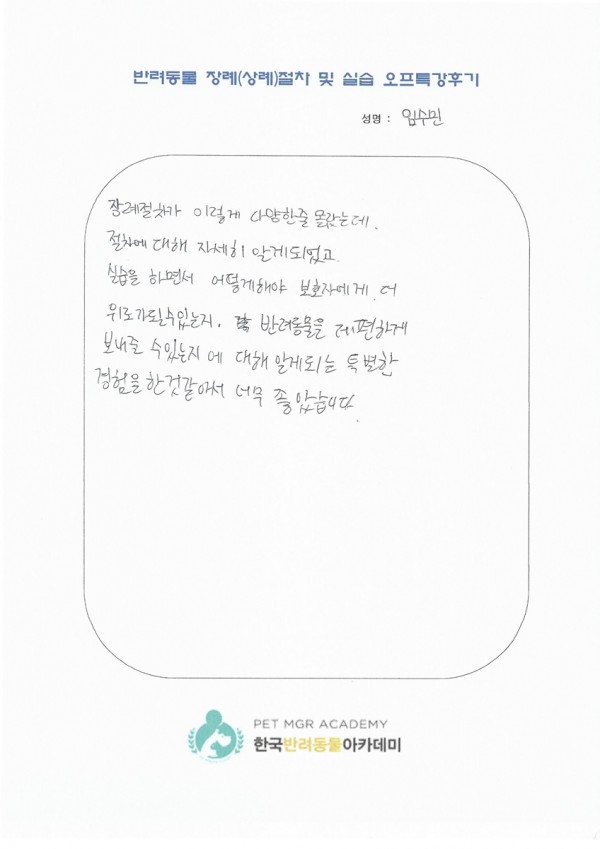 반려동물 장례(상례)절차 및 실습 오프특강후기
성명 : 임수민
장례절차가 이렇게 다양한줄 몰랐는데,
절차에 대해 자세히 알게되었고
실습을 하면서 어떻게해야 보호자에게 더
위로가될수있는지, 반려동물을 더 편하게
보내줄 수있는지 에 대해 알게되는 특별한
경험을한것같아서 너무 좋았습니다.
PET MGR ACADEMY
한국반려동물아카데미